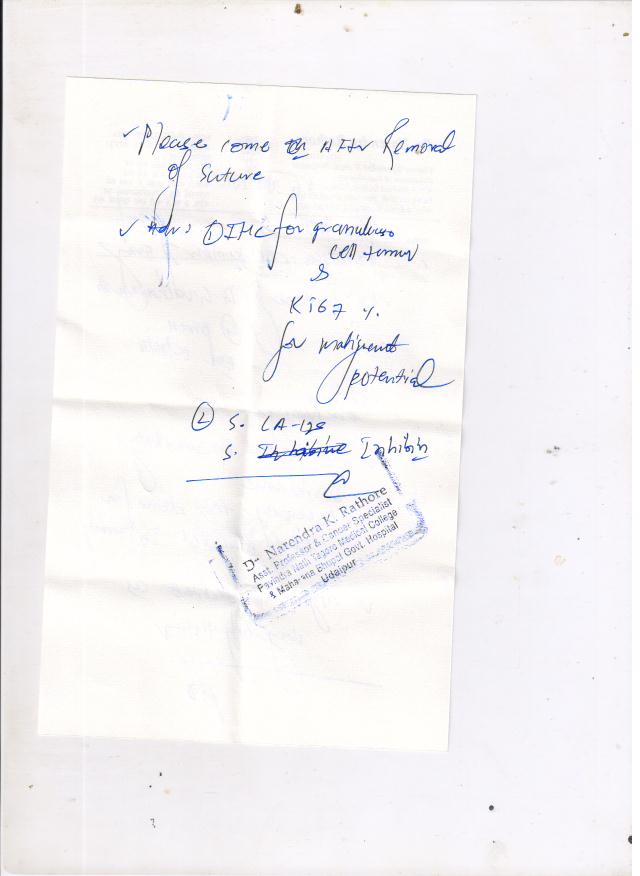 ✓ Please come After Removal
of Suture
✓ Adv: ① IHC for granulosa
cell tumor
&
Ki67 %
for malignant
potential
② S. CA-125
S. Inhibin
Dr Narendra K. Rathore
Asst. Professor & Cancer Specialist
Ravindra Nath Tagore Medical College
& Maharana Bhupal Govt. Hospital
Udaipur